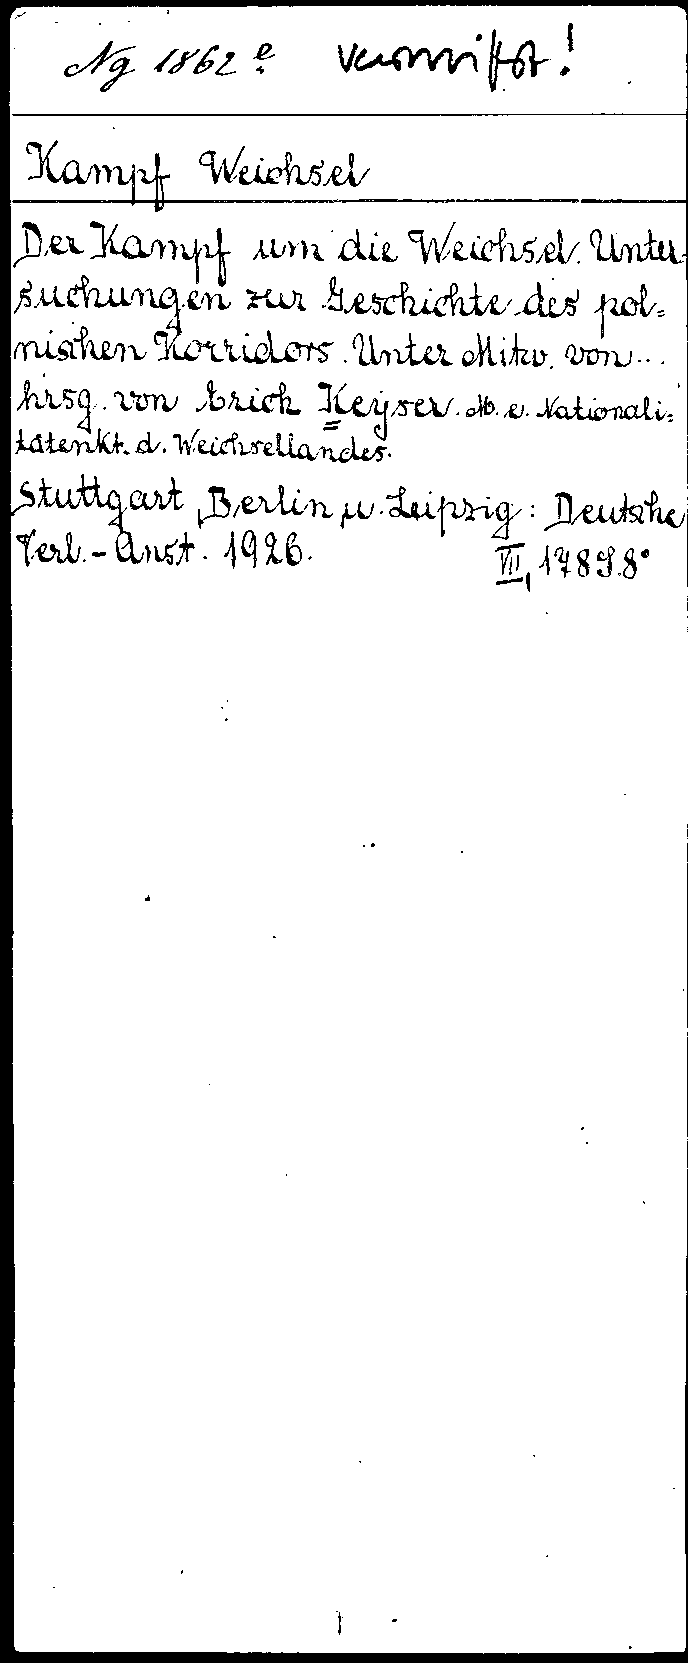 Ng 1862 e vermißt!
Kampf Weichsel
Der Kampf um die Weichsel. Unter-
suchungen zur Geschichte des pol=
nischen Korridors. Unter Mitw. von...
hrsg. von Erich Keyser. M. e. Nationali=
tätenkt. d. Weichsellandes.
Stuttgart, Berlin u. Leipzig: Deutsche
Verl.-Anst. 1926. VII, 178 S. 8°